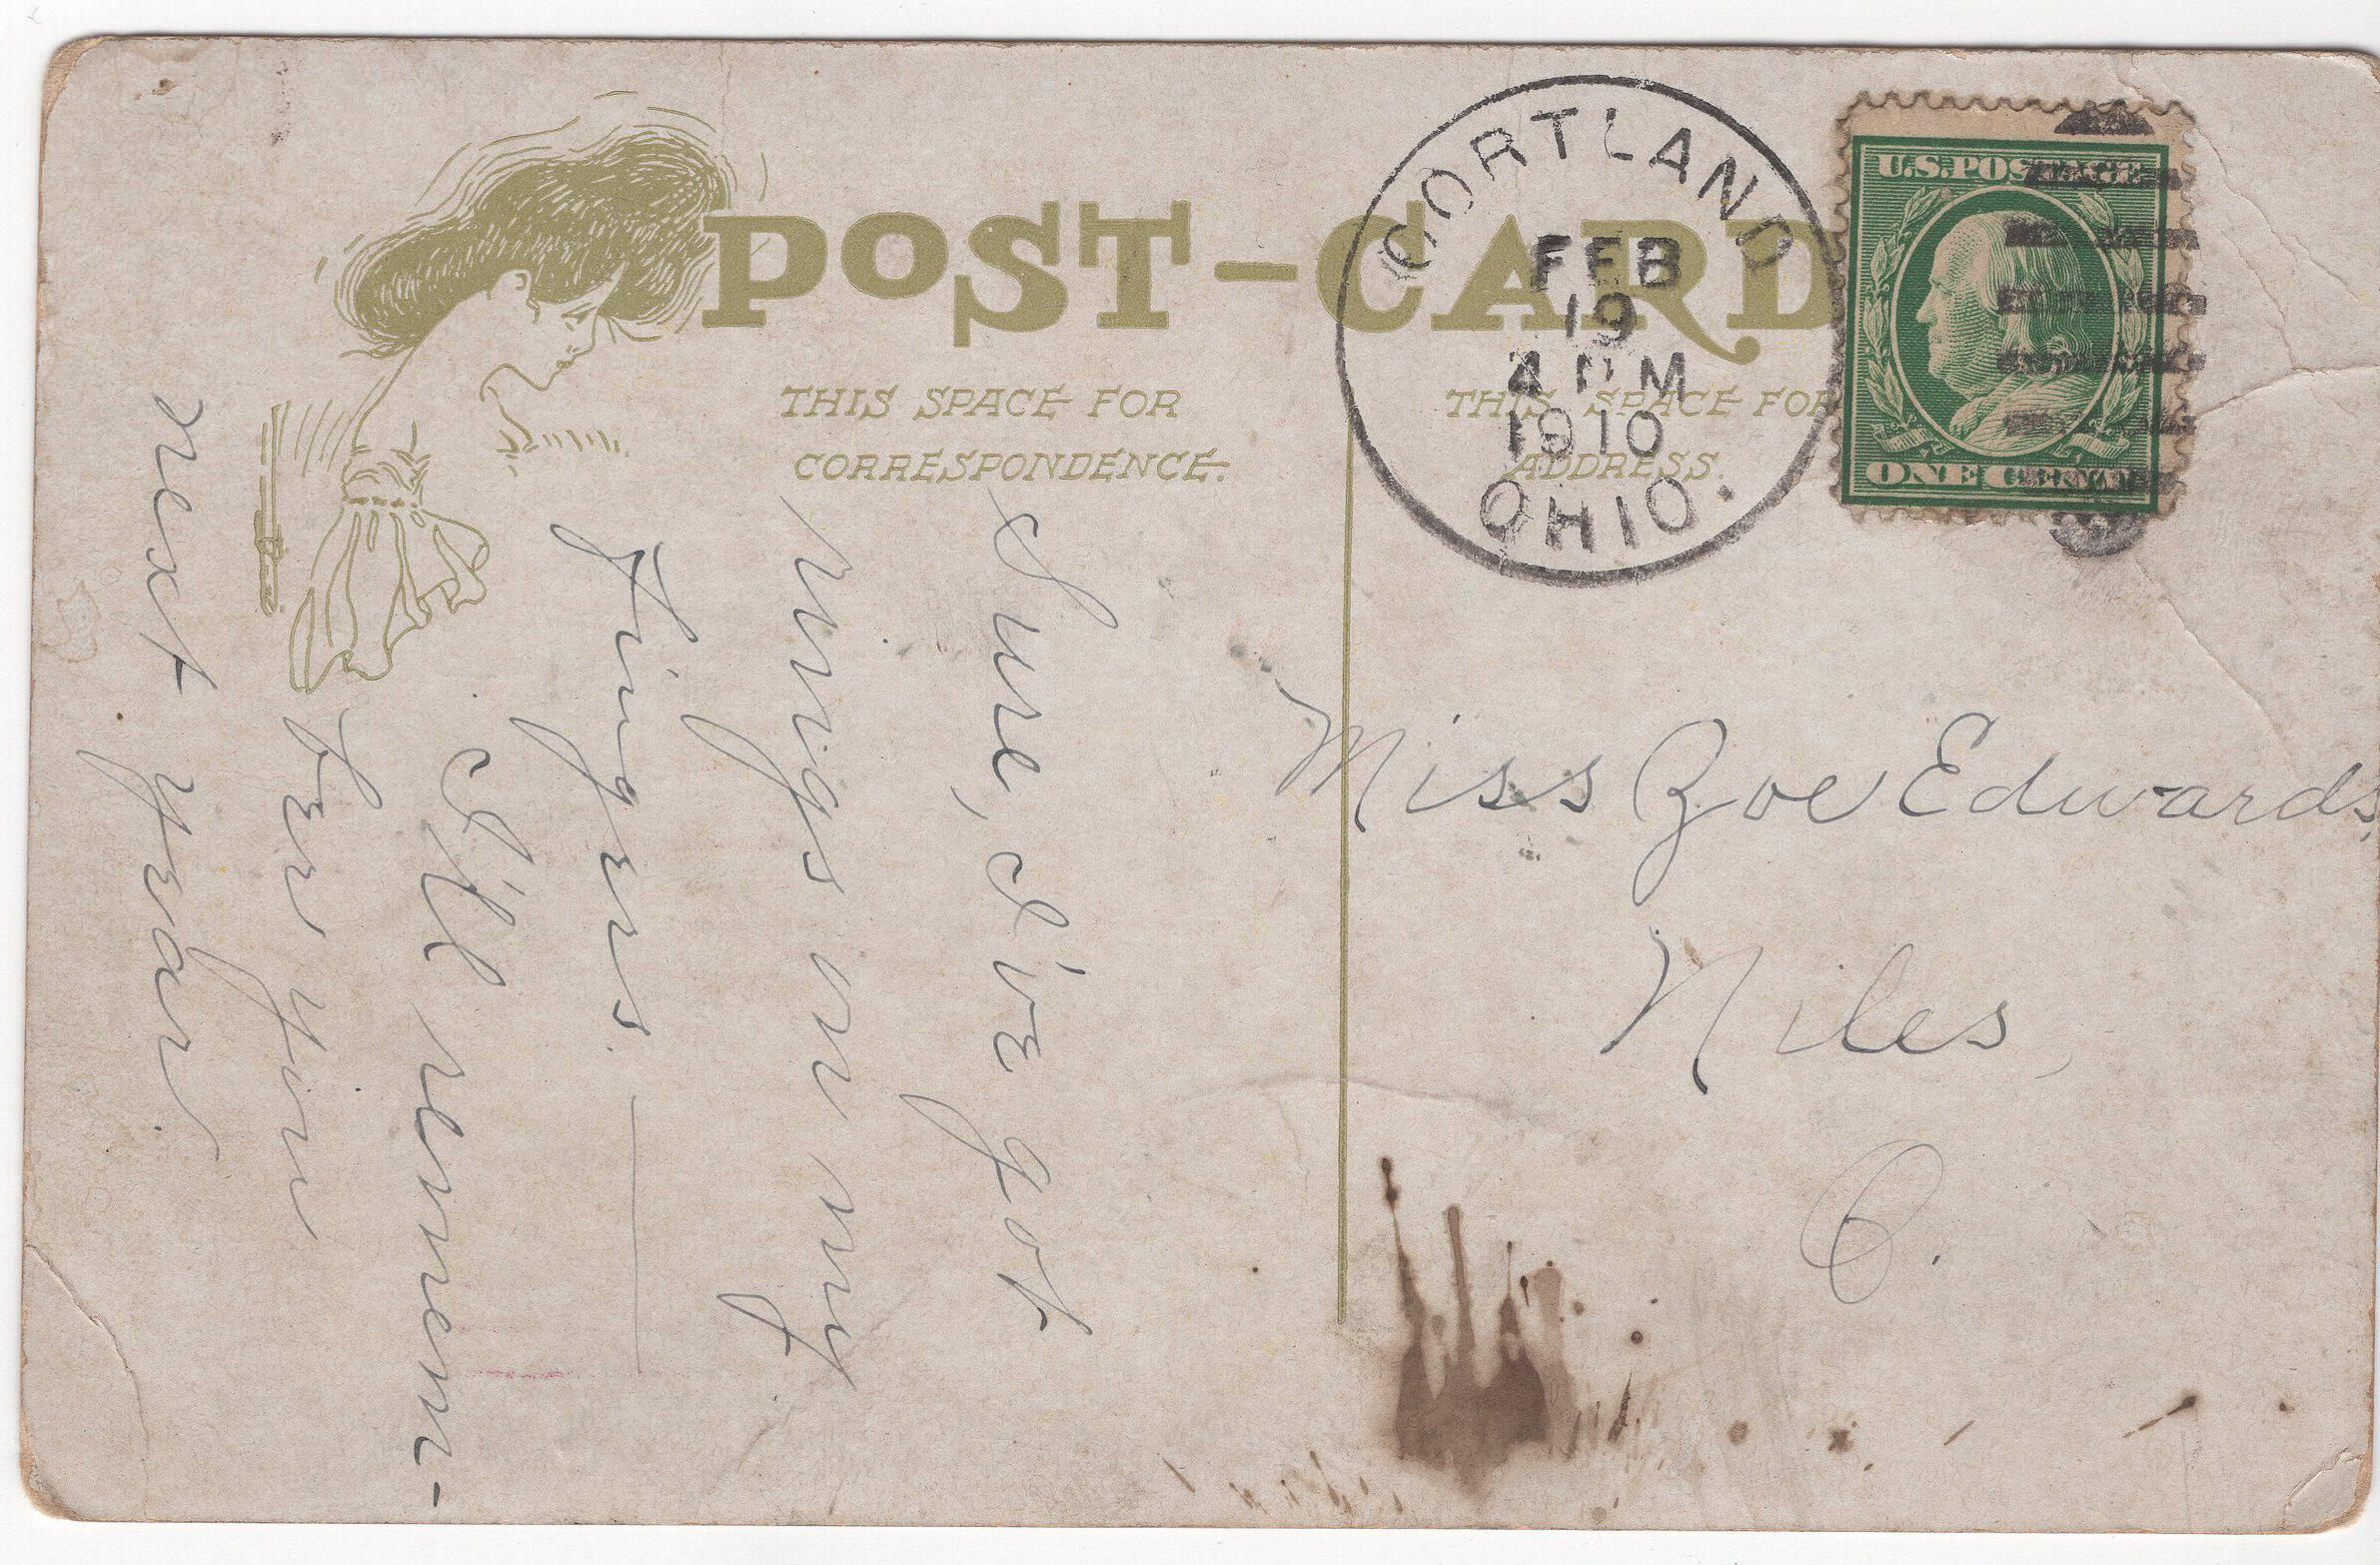 POST-CARD
THIS SPACE FOR
CORRESPONDENCE.
THIS SPACE FOR
ADDRESS.
CORTLAND
FEB
19
4 PM
1910
OHIO.
U.S. POSTAGE
ONE CENT
Sure, I've got
rings on my
fingers.
I'll remem-
ber you
next year.
Miss Zoe Edwards,
Niles,
O.